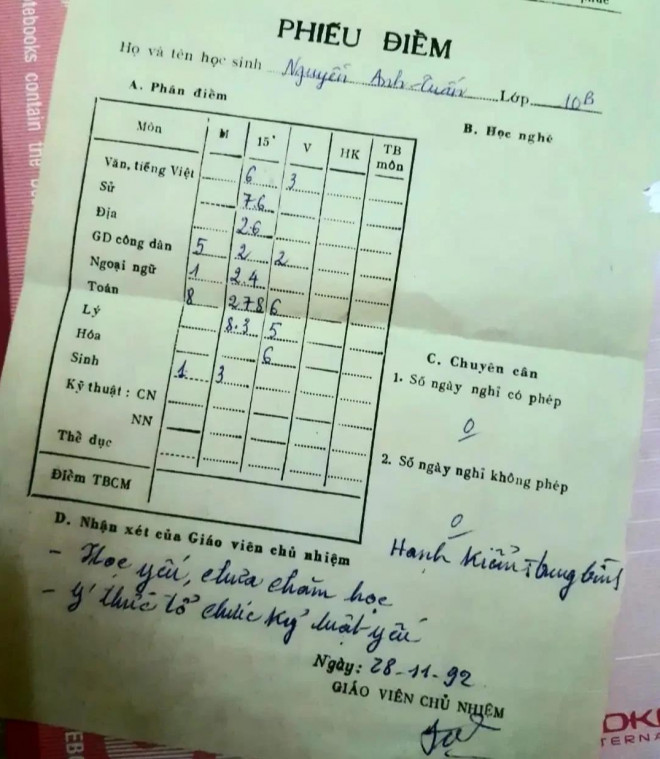 PHIẾU ĐIỂM
Họ và tên học sinh Nguyễn Anh Tuấn Lớp 10B
A. Phần điểm
B. Học nghề
Môn M 15' V HK TB môn
Văn, tiếng Việt 6 3
Sử 7.6
Địa 2.6
GD công dân 5 2 2
Ngoại ngữ 1 2.4
Toán 8 2786
Lý 8.3 5
Hóa 6
Sinh 1 3
Kỹ thuật : CN
NN
Thể dục
Điểm TBCM
C. Chuyên cần
1. Số ngày nghỉ có phép
0
2. Số ngày nghỉ không phép
0
Hạnh kiểm trung bình
D. Nhận xét của Giáo viên chủ nhiệm
- Học yếu, chưa chăm học
- ý thức tổ chức kỷ luật yếu
Ngày: 28-11-92
GIÁO VIÊN CHỦ NHIỆM
tebooks contain the